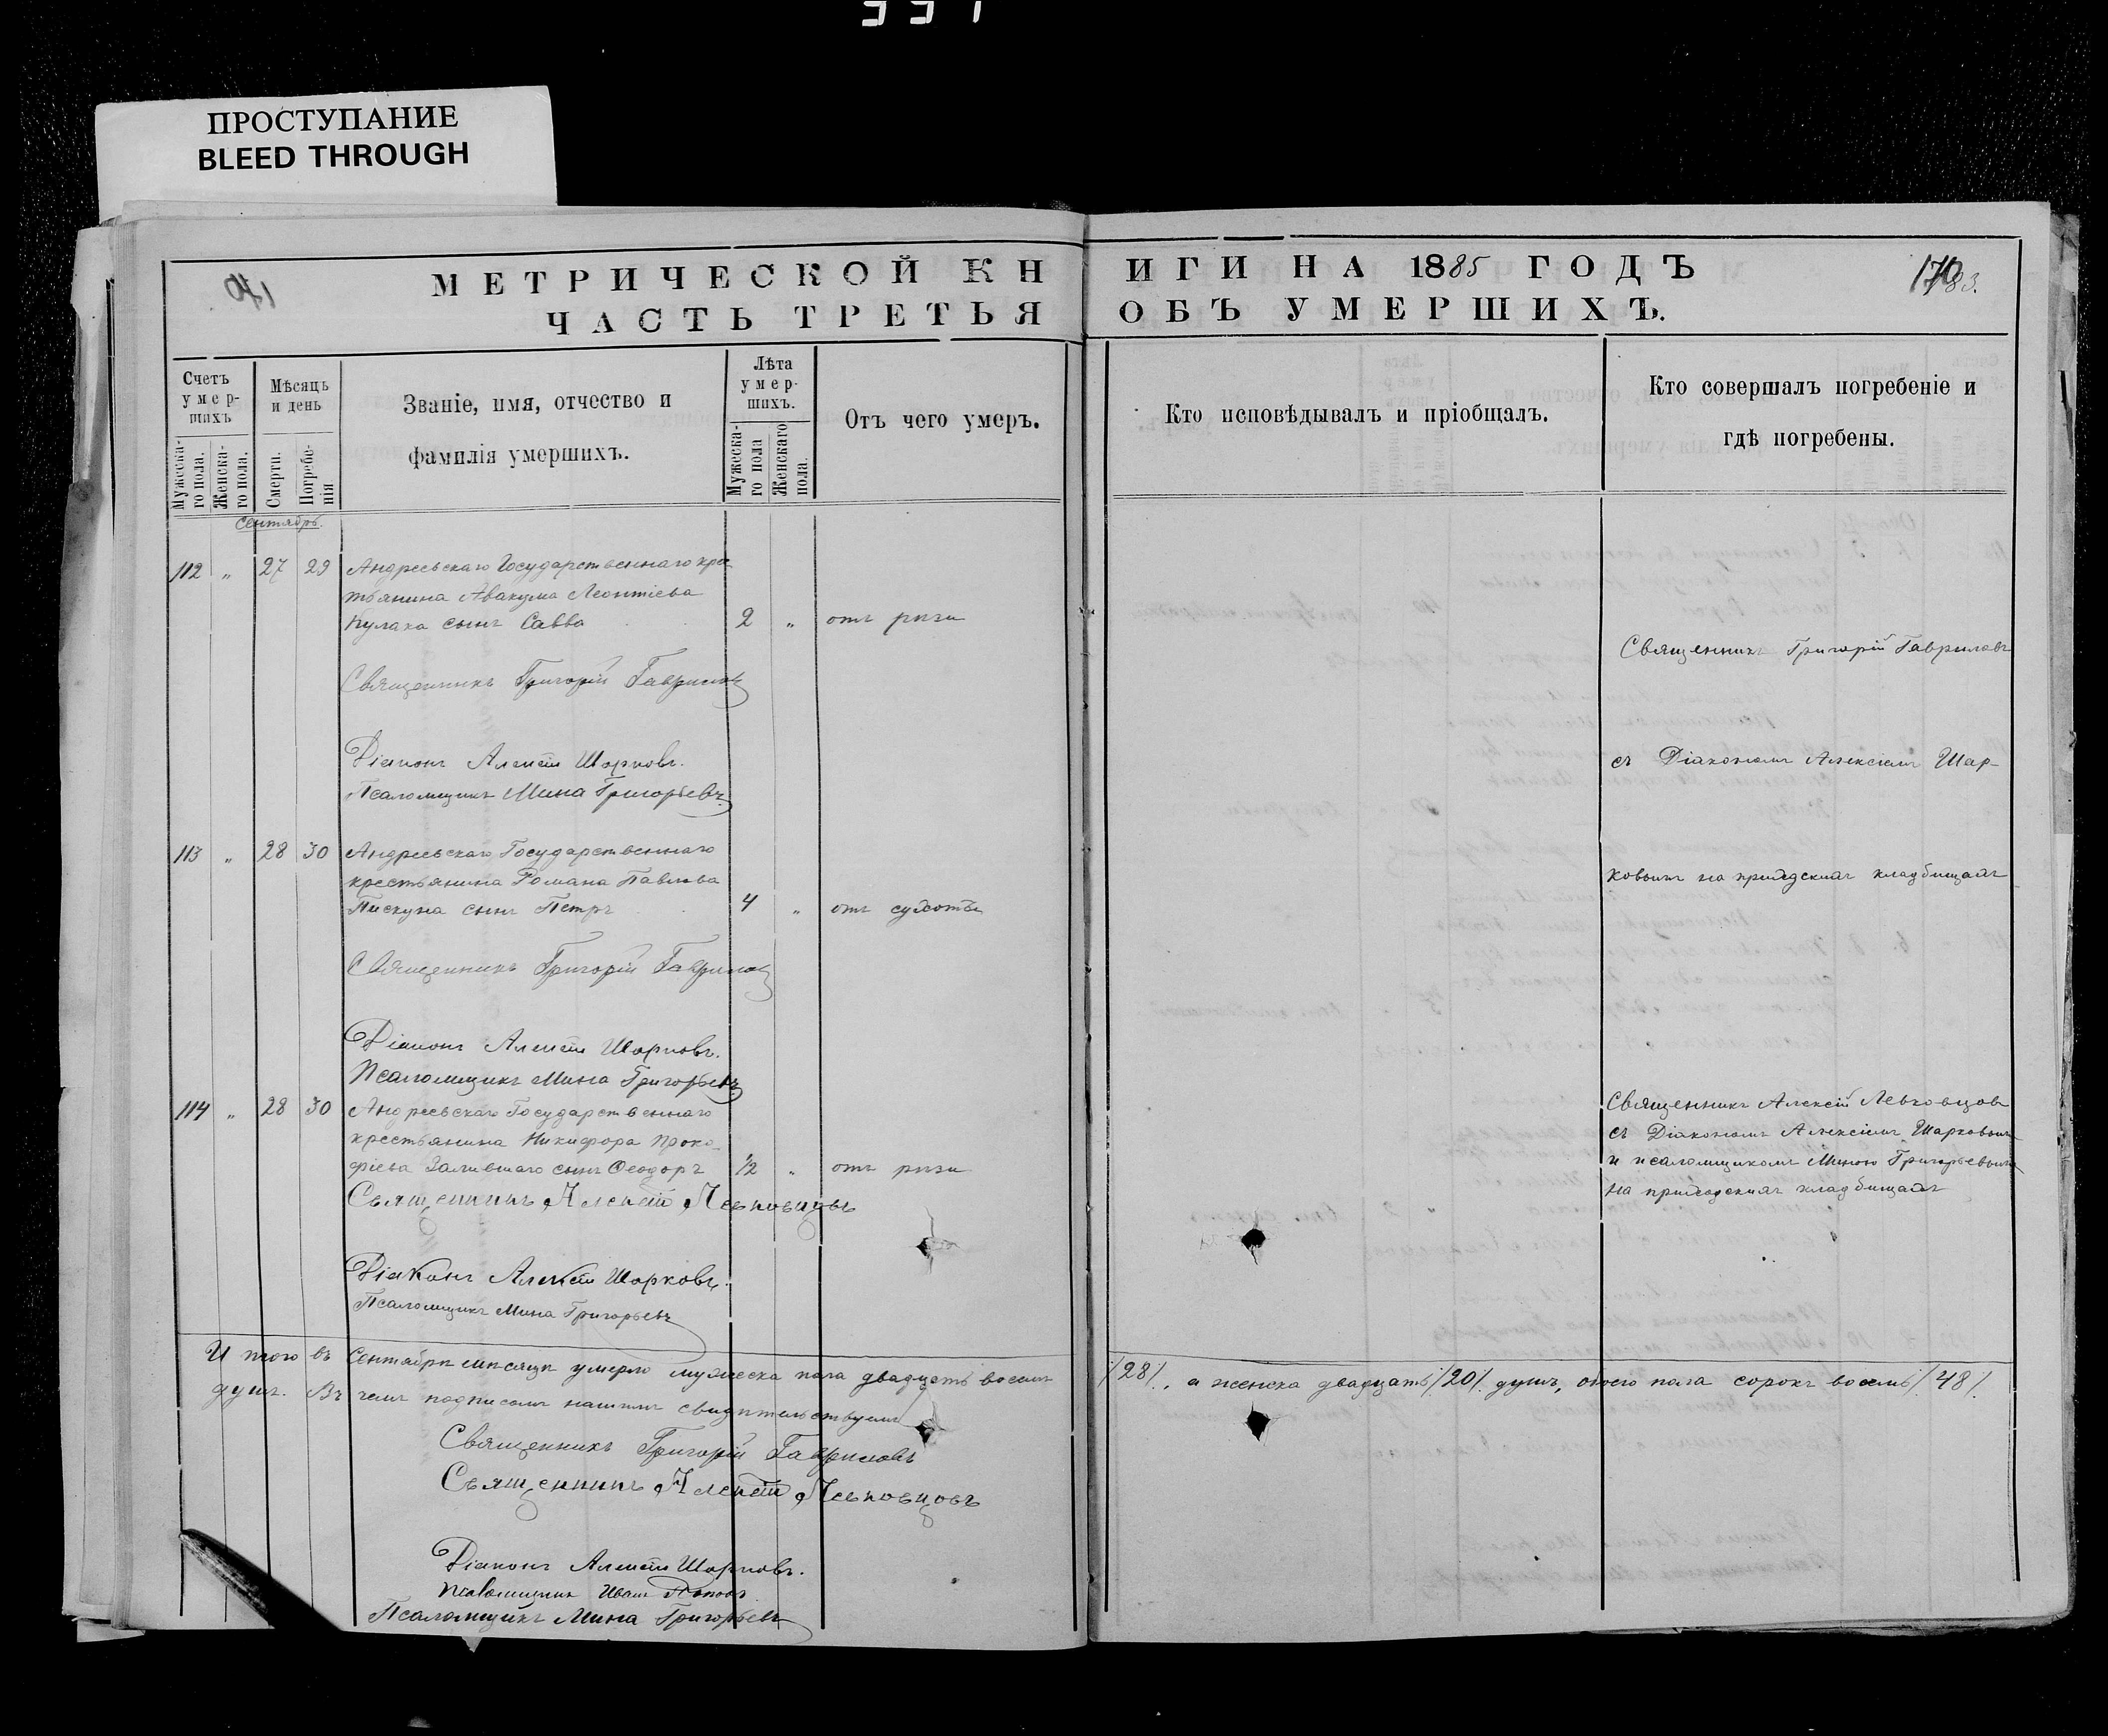 ПРОСТУПАНИЕ
BLEED THROUGH
МЕТРИЧЕСКОЙ КНИГИ НА 1885 ГОДЪ
ЧАСТЬ ТРЕТЬЯ ОБЪ УМЕРШИХЪ.
Счетъ умер-шихъ
Мужеска-го пола.
Женска-го пола.
Мѣсяцъ и день
Смерти.
Погребе-нія
Званіе, имя, отчество и
фамилія умершихъ.
Лѣта умер-шихъ.
Мужеска-го пола
Женскаго пола.
Отъ чего умеръ.
Кто исповѣдывалъ и пріобщалъ.
Кто совершалъ погребеніе и
гдѣ погребены.
Сентябрь.
112 „ 27 29 Андреевскаго Государственнаго кре-
стьянина Авакума Леонтіева
Кулака сынъ Савва 2 „ отъ рожи
Священникъ Григорій Гавриловъ
Діаконъ Алексѣй Шарковъ.
Псаломщикъ Мина Григорьевъ
113 „ 28 30 Андреевскаго Государственнаго
крестьянина Романа Павлова
Пискуна сынъ Петръ 4 „ отъ сухотъ
Священникъ Григорій Гавриловъ
Діаконъ Алексѣй Шарковъ.
Псаломщикъ Мина Григорьевъ
114 „ 28 30 Андреевскаго Государственнаго
крестьянина Никифора Проко-
фіева сынъ Ѳеодоръ 1/2 „ отъ рожи
Священникъ Алексѣй Левковцовъ
Діаконъ Алексѣй Шарковъ.
Псаломщикъ Мина Григорьевъ
Священникъ Григорій Гавриловъ
съ Діакономъ Алексіемъ Шар-
ковымъ на приходскихъ кладбищахъ
Священникъ Алексій Левковцовъ
съ Діакономъ Алексіемъ Шарковымъ
и псаломщикомъ Миною Григорьевымъ
на приходскихъ кладбищахъ
Итого въ Сентябрѣ мѣсяцѣ умерло мужеска пола двадцать восемь /28/, а женска двадцать /20/ душъ, обоего пола сорокъ восемь /48/
душъ. Въ чемъ подписомъ нашимъ свидѣтельствуемъ
Священникъ Григорій Гавриловъ
Священникъ Алексѣй Левковцовъ
Діаконъ Алексѣй Шарковъ.
Псаломщикъ Иванъ Поповъ
Псаломщикъ Мина Григорьевъ